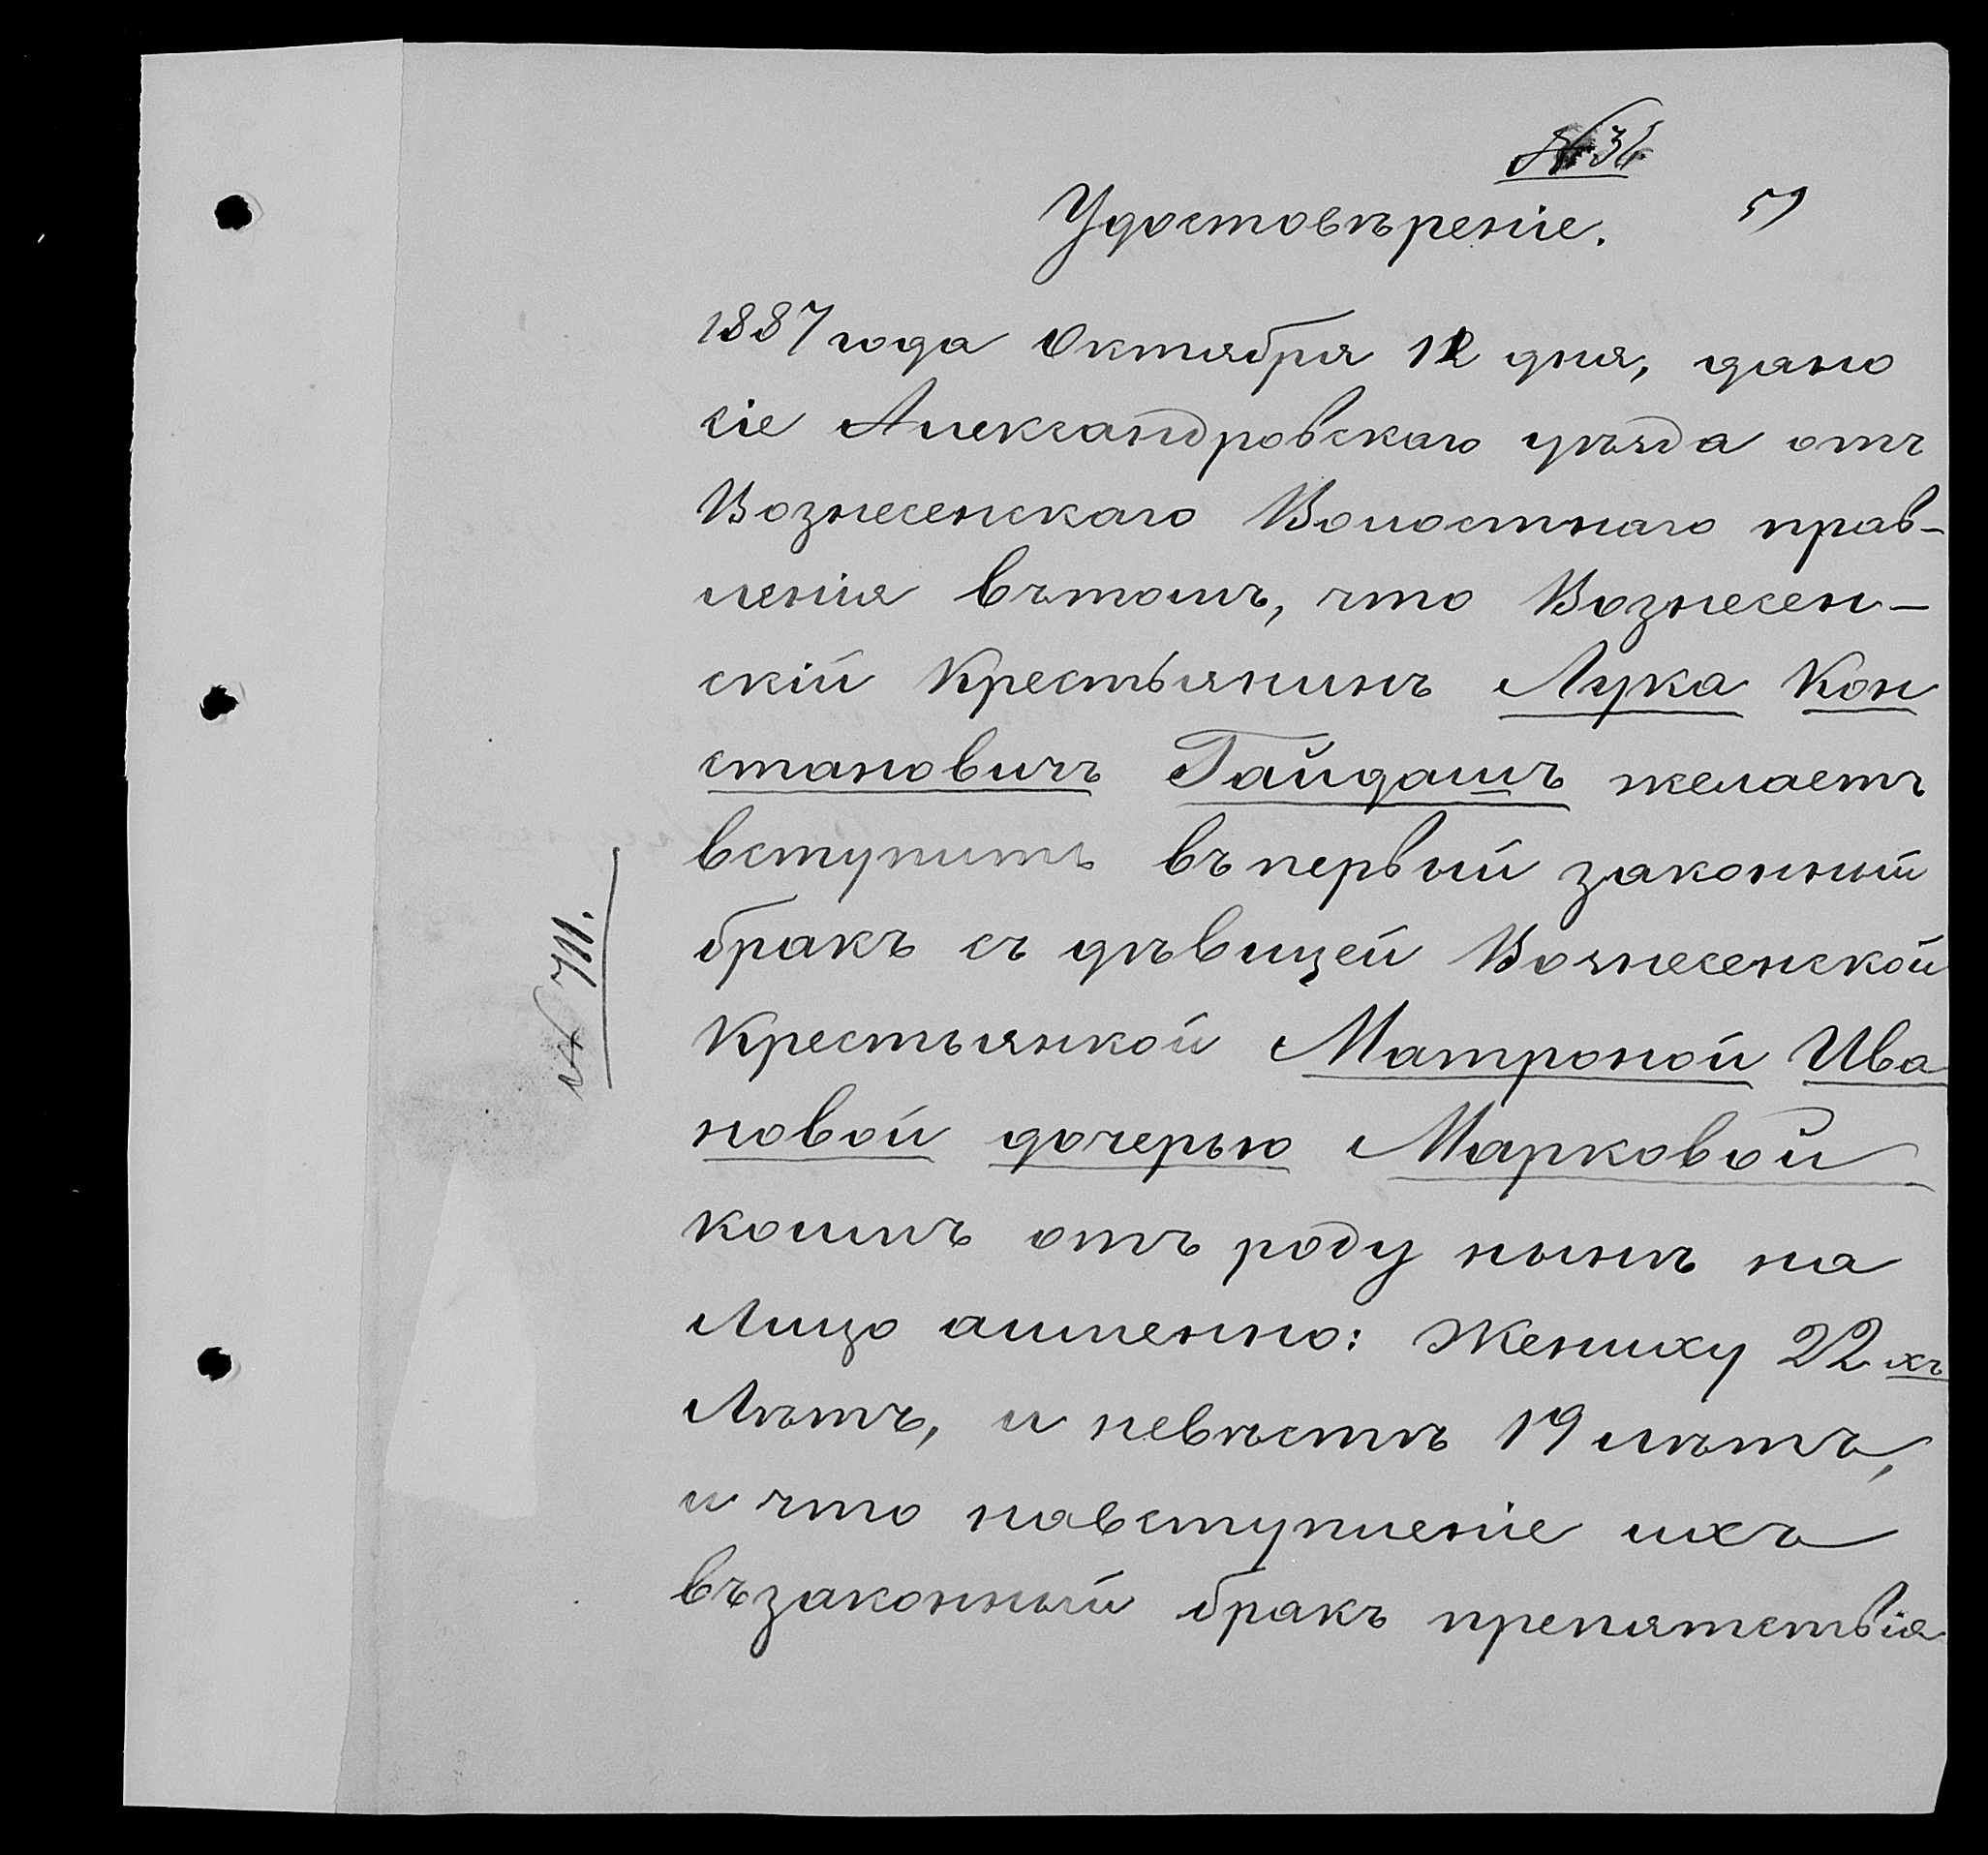 № 36
59
Удостовѣреніе.
1887 года Октября 12 дня, дано
сіе Александровскаго уѣзда отъ
Вознесенскаго Волостнаго прав-
ленія вътомъ, что Вознесен-
скій Крестьянинъ Лука Кон
становичъ Гайдашъ желаетъ
вступить въ первый законный
бракъ съ дѣвицей Вознесенской
Крестьянкой Матроной Ива
новой дочерью Марковой
коимъ отъ роду нынѣ на
Лицо аименно: Жениху 22хъ
Лѣтъ, и невѣстѣ 19 лѣтъ,
и что навступленіе ихъ
възаконный бракъ препятствія
№ 711.